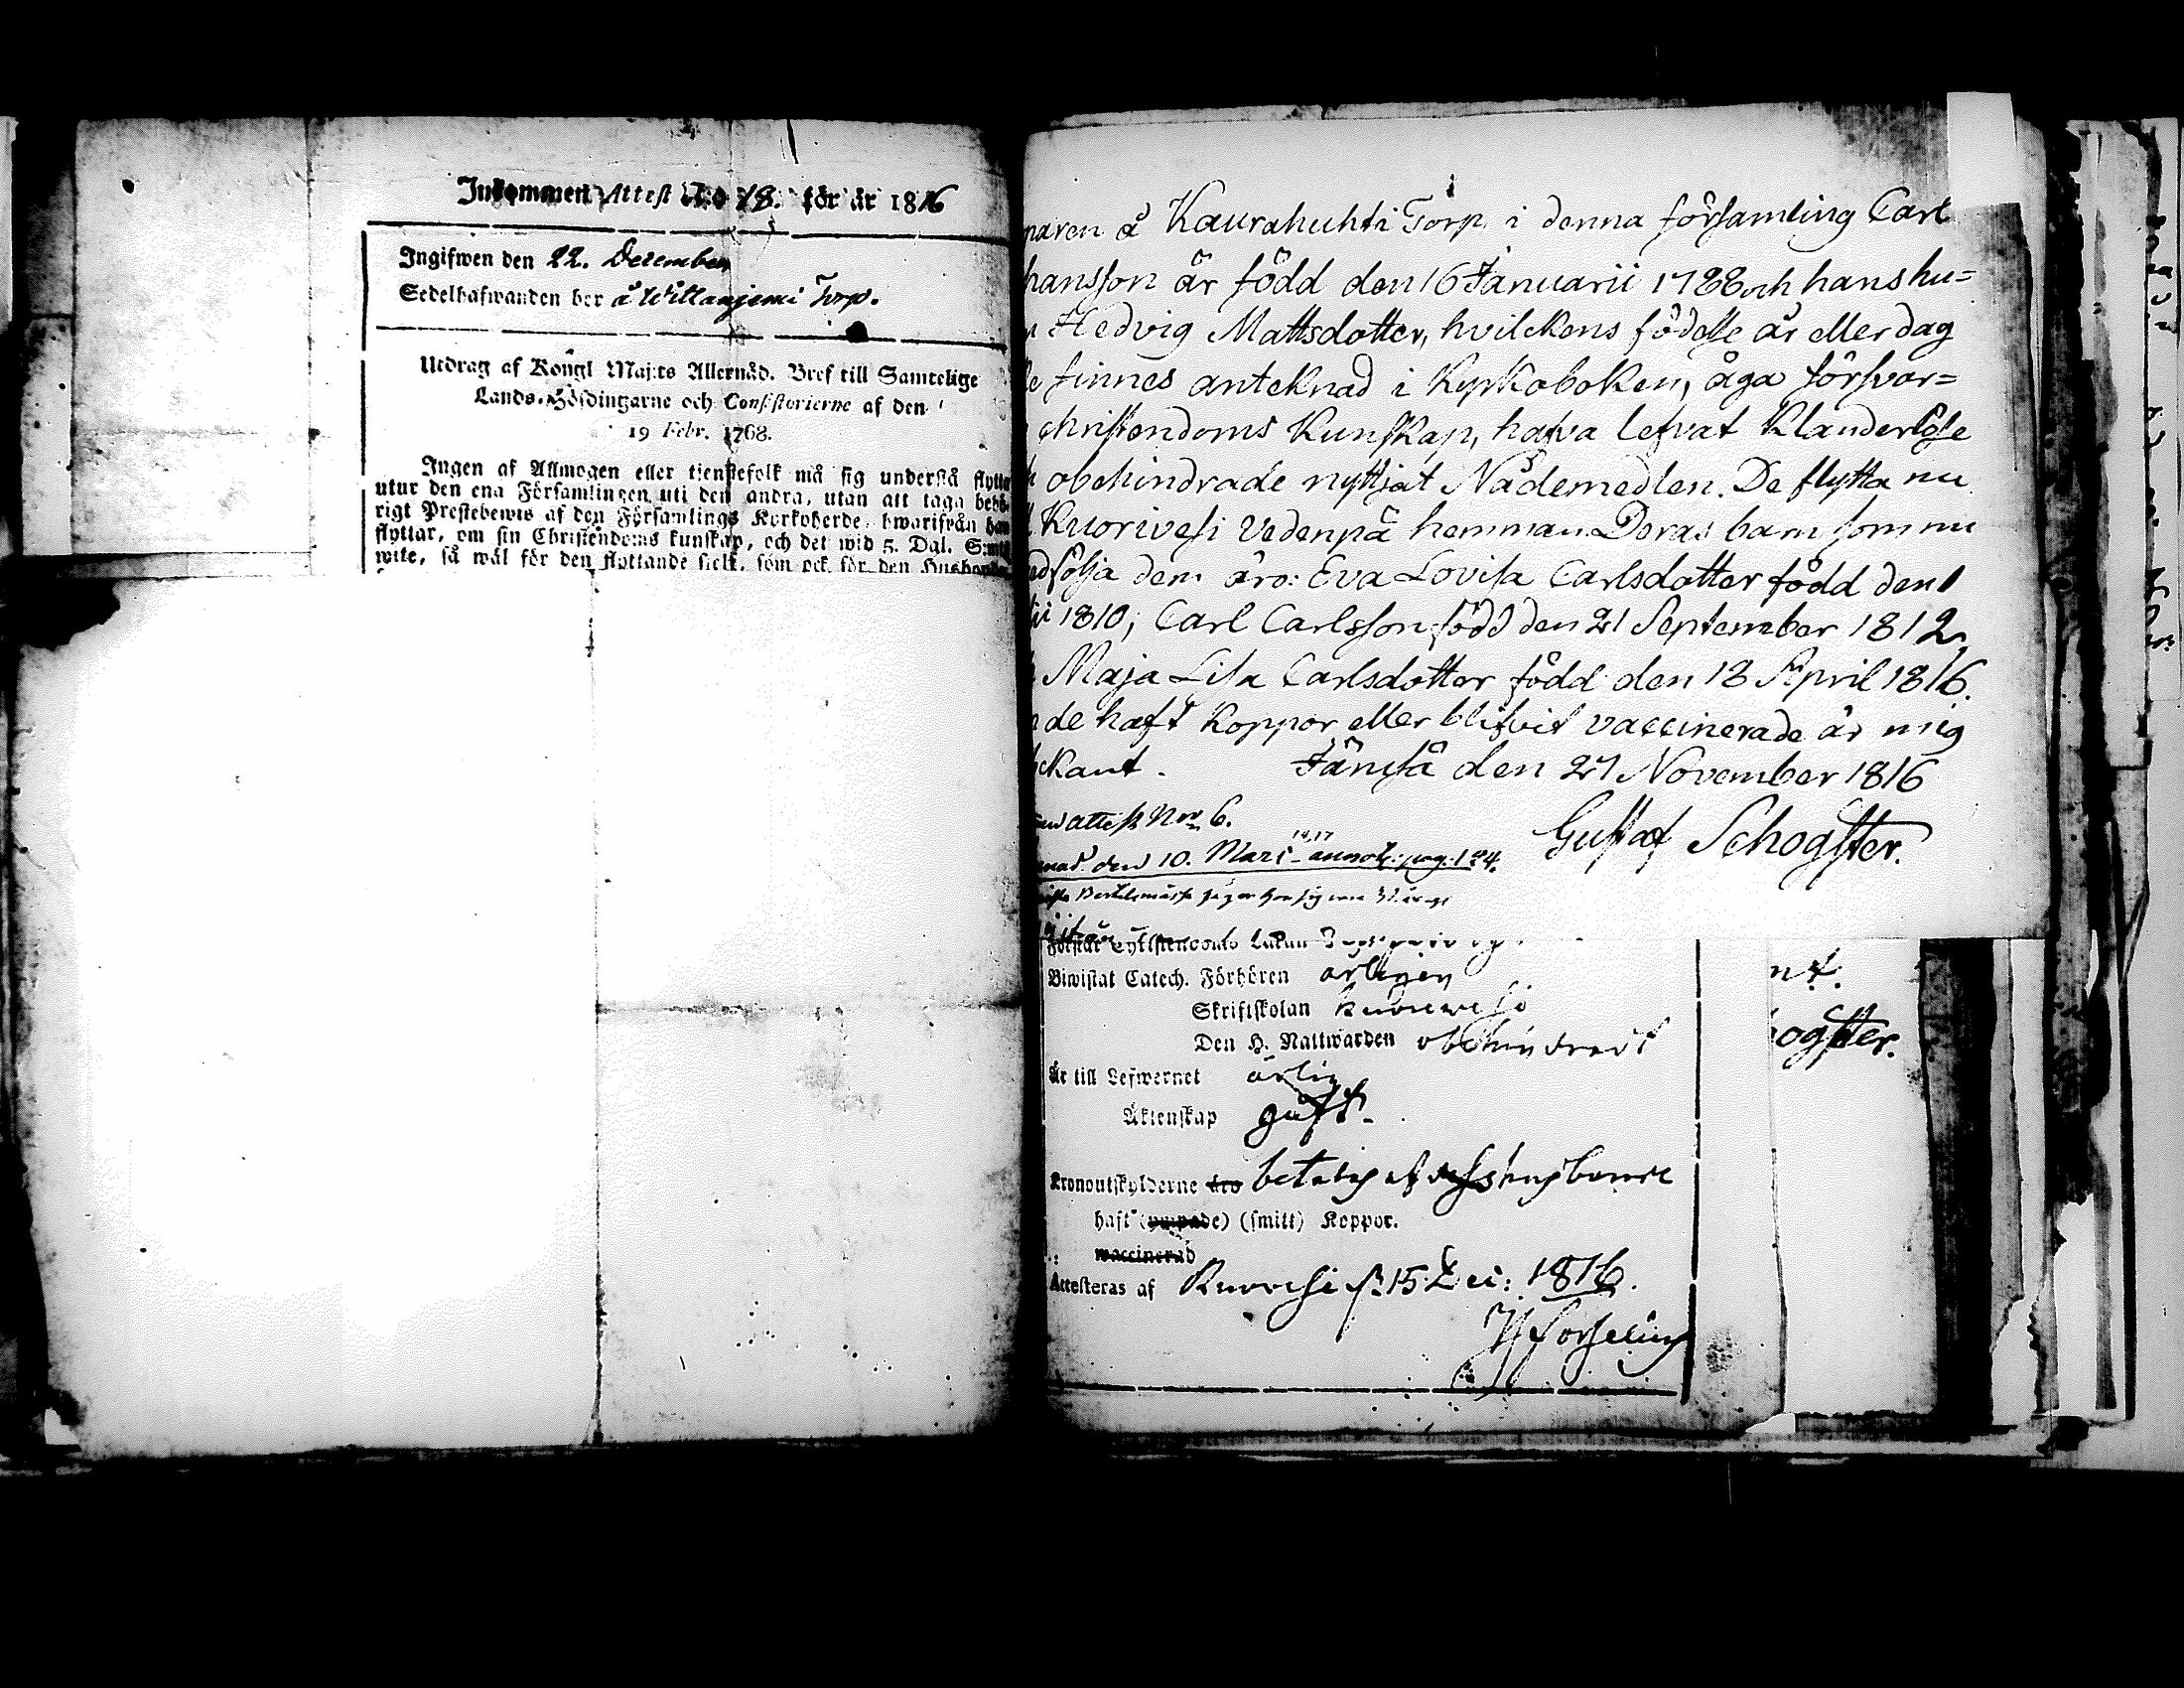 Inkommen Attest N:o 18. för år 1816
Ingifwen den 22. December
Sedelhafwanden bor å Willanjemi Torp.
Utdrag af Kongl Maj:ts Allernåd. Bref till Samtelige
Lands-Höfdingarne och Consistorierne af den
19 Febr. 1768.
Ingen af Allmogen eller tjenstefolk må sig understå flytta
utur den ena Församlingen uti den andra, utan att taga behö-
rigt Prestebewis af den Församlings Kyrkoherde, hwarifrån han
flyttar, om sin Christendoms kunskap, och det wid 5. Dal. S:mts
wite, så wäl för den flyttande sielf, som ock för den Husbonde
naren å Kaurahuhti Torp i denna församling Carl
hansson är född den 16 Januarii 1788 och hans hu=
Hedvig Mattsdotter, hvilckens födelse år eller dag
finnes anteknad i Kyrkoboken, äga försvar=
christendoms Kunskap, hafva lefvat Klanderlöse
obehindrade nyttjat Nådemedlen. De flytta nu
Kuorivesi Vedenpä hemman. Deras barn som nu
edfölja dem äro: Eva Lovisa Carlsdotter född den 1
1810; Carl Carlsson född den 21 September 1812,
Maja Lisa Carlsdotter född den 18 April 1816.
de haft Koppor eller blifvit vaccinerade är mig
ekant. Jämsä den 27 November 1816
Gustaf Schogster.
attest Nro 6.
1817
den 10. Mars annot: pag: 124.
Förstår Christendoms Läran
Biwistat Catech. Förhören årligen
Skriftskolan Kuorewesi
Den H. Nattwarden obehindradt
Är till Lefwernet ärlig
Äktenskap gift.
Kronoutskylderne äro betalas af dess husbonde
haft (ympade) (smitt) Koppor.
waccinerad
Attesteras af Kuorvesi 15 1816.
nt.
ogster.